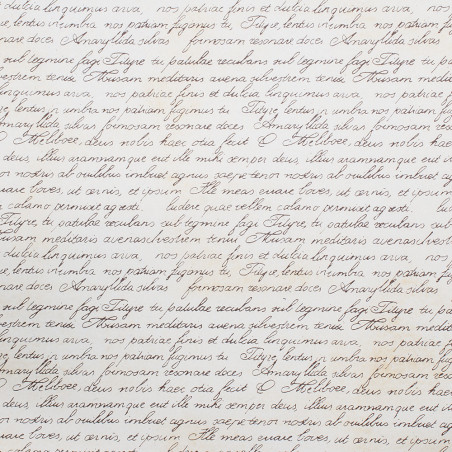 dulcia linquimus arva, nos patriae finis et dulcia linquimus arva, nos
re, lentus in umbra nos patriam fugimus tu, Tityre, lentus in umbra nos pa
nare doces Amaryllida silvas formosam resonare doces Amaryllida silvas
sub tegmine fagi Tityre tu patulae recubans sub tegmine fagi Tityre tu
vestrem tenui Musam meditaris avena silvestrem tenui Musam medita
linquimus arva, nos patriae finis et dulcia linquimus arva, nos patriae f
re, lentus in umbra nos patriam fugimus tu, Tityre, lentus in umbra nos pa
maryllida silvas formosam resonare doces Amaryllida silvas formosam
O Meliboee, deus nobis haec otia fecit O Meliboee, deus nobis
deus, illius aramnamque erit ille mihi semper deus, illius aramnamque erit ill
nostris ab ovilibus imbuet agnus saepe tener nostris ab ovilibus imbuet a
errare boves, ut cernis, et ipsum Ille meas errare boves, ut cernis, et i
calamo permisit agresti. ludere quae vellem calamo permisit agresti. ludere
Tityre, tu patulae recubans sub tegmine fagi Tityre, tu patulae recubans
usam meditaris avenasilvestrem tenui Musam meditaris avenasilvestrem
dulcia linquimus arva, nos patriae finis et dulcia linquimus arva, nos
re, lentus in umbra nos patriam fugimus tu, Tityre, lentus in umbra nos pa
formosam resonare doces Amaryllida silvas
sub tegmine fagi Tityre tu patulae recubans sub tegmine fagi Tityre tu
vestrem tenui Musam meditaris avena silvestrem tenui Musam
linquimus arva, nos patriae finis et dulcia linquimus arva, nos patriae
re, lentus in umbra nos patriam fugimus tu, Tityre, lentus in umbra nos
maryllida silvas formosam resonare doces Amaryllida silvas formosam
O Meliboee, deus nobis haec otia fecit O Meliboee, deus nobis
deus, illius aramnamque erit ille mihi semper deus, illius aramnamque erit
nostris ab ovilibus imbuet agnus saepe tener nostris ab ovilibus imbuet
errare boves, ut cernis, et ipsum Ille meas errare boves, ut cernis, et